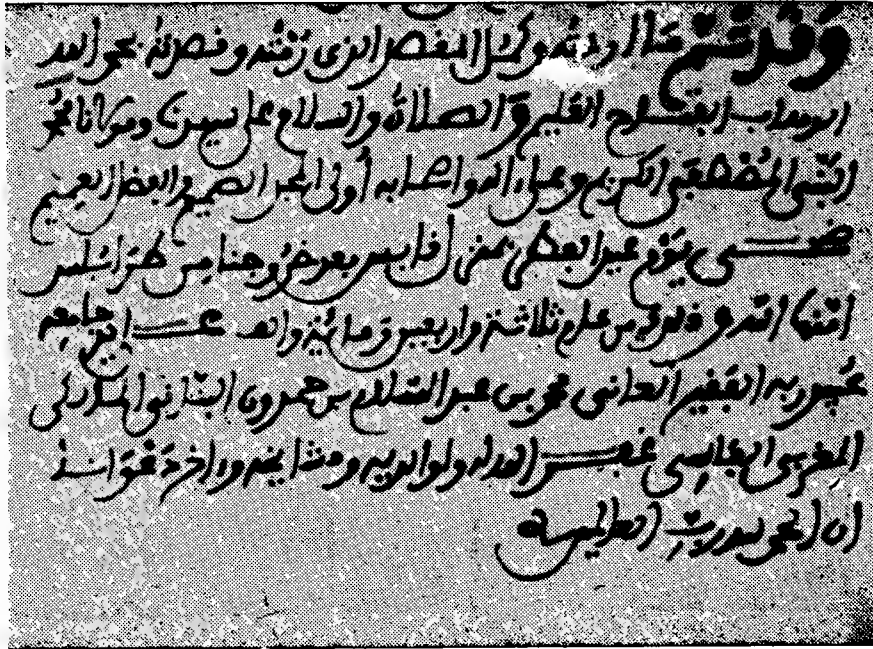 وقد تم ما اردته وكمل الغرض الذي رمته وقصدته بحمد الله
الوهاب الفتاح العليم والصلاة والسلام على سيدنا ومولانا محمد
النبي المصطفى الكريم وعلى اله واصحابه أولى المجد الصميم والفضل العميم
ضحى يوم عيد الفطر بمدينة بعد خروجنا من طرابلس
امنها الله من عام ثلاثة واربعين ومائة والف على يد جامعه
عبيد ربه الفقير الفاني محمد بن عبد السلام بن حمدون البناني
المغربي الفاسي غفر الله له ولوالديه ومشايخه وءاخر دعوانا
ان الحمد لله رب العالمين